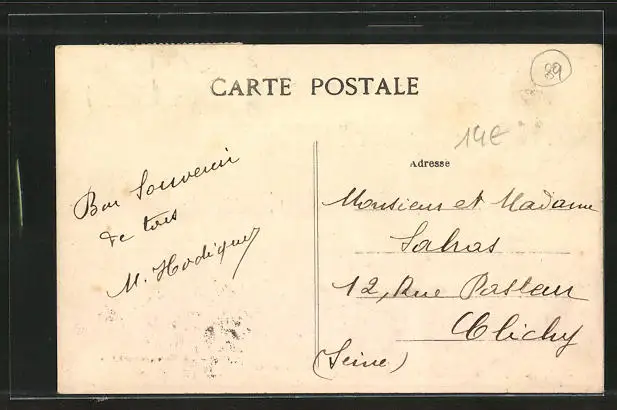 CARTE POSTALE
89
14€
Adresse
Bon Souvenir
de tous
M. Hodiquez
Monsieur et Madame
Salvas
12, Rue Pasteur
Clichy
(Seine)